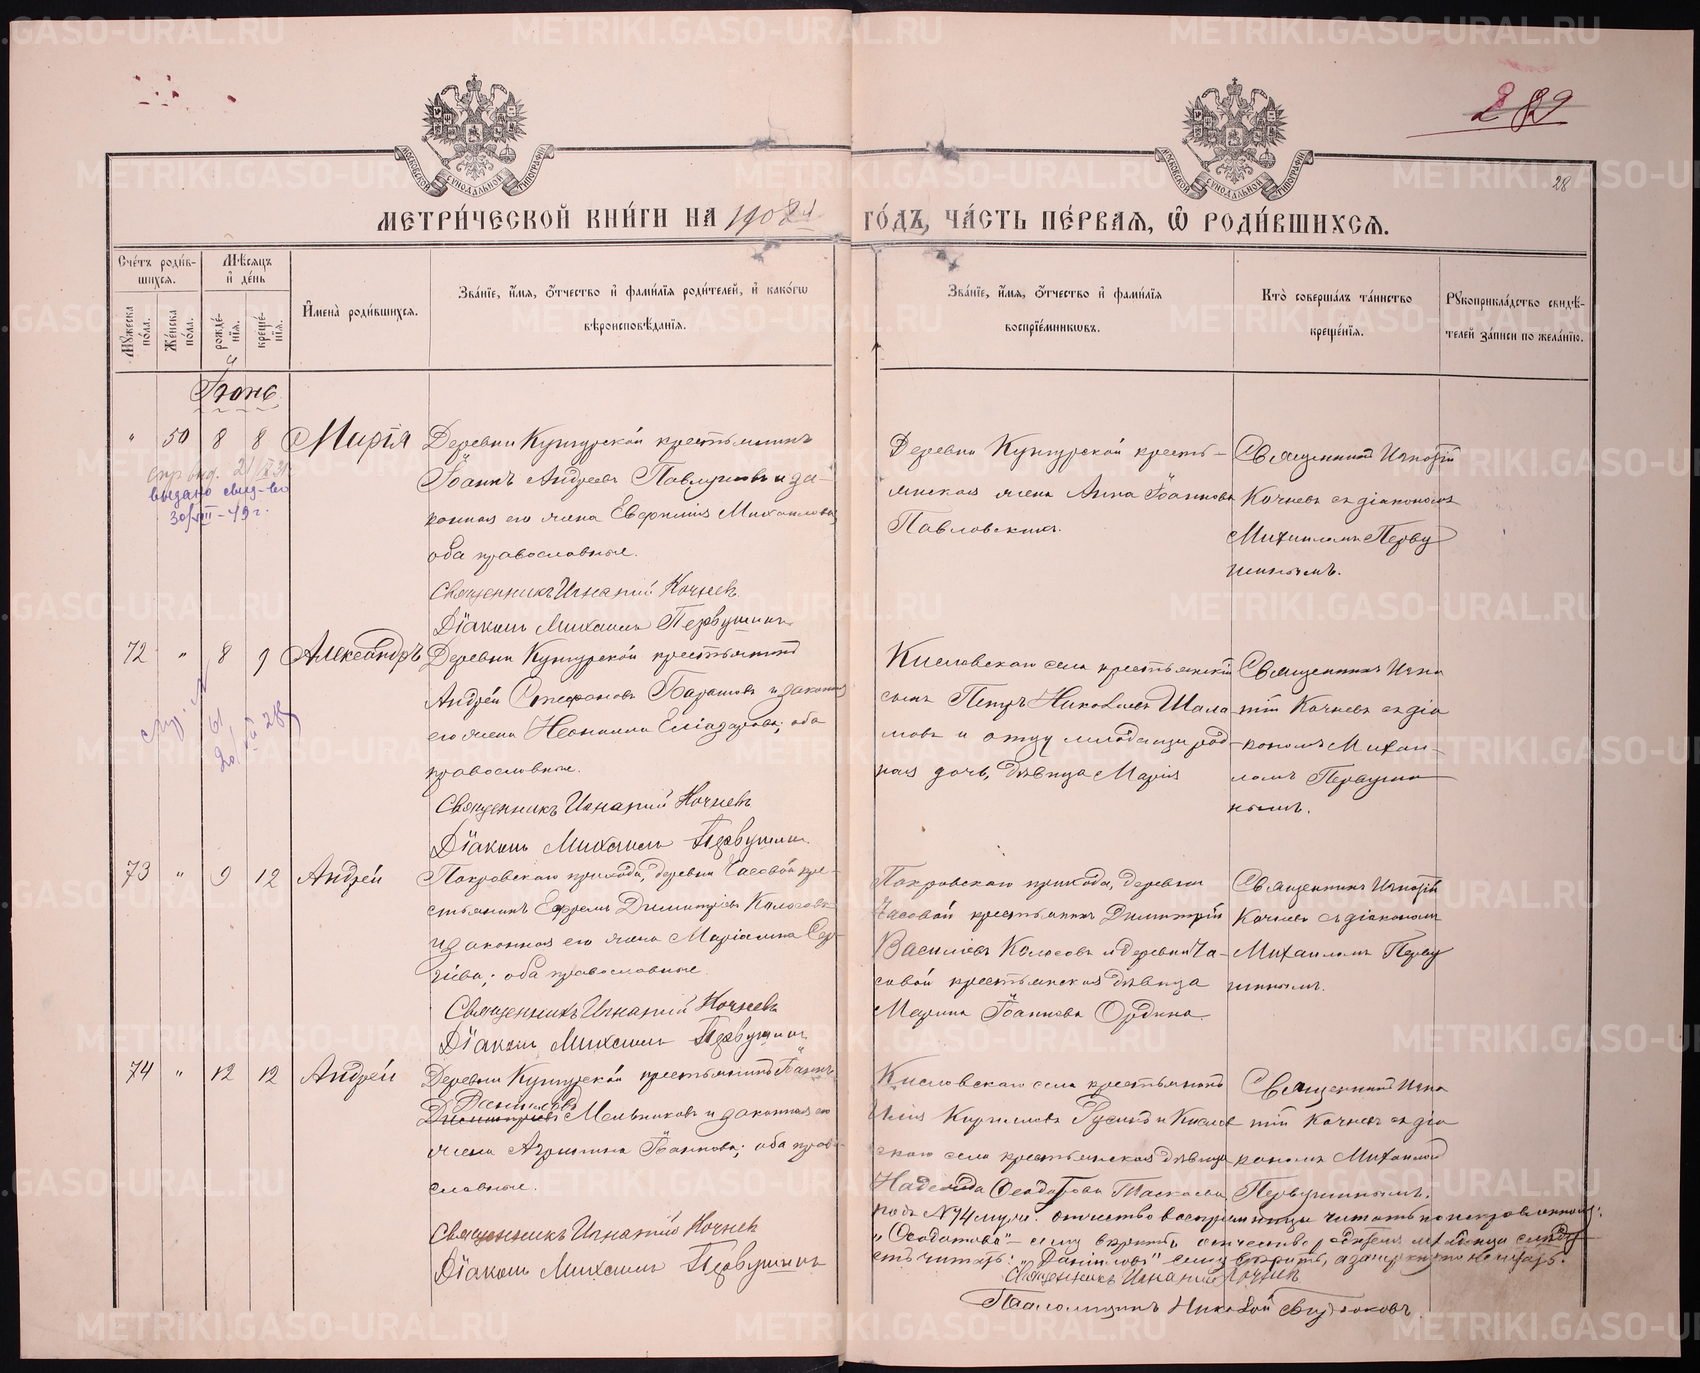 289
28
МЕТРИ́ЧЕСКОЙ КНИ́ГИ НА 1902 ГО́ДЪ, ЧА́СТЬ ПЕ́РВАЯ, Ѡ РОДИ́ВШИХСЯ.
Сче́тъ роди́в-
шихся.
Мѣ́сяцъ
и де́нь
Му́жеска по́ла.
Же́нска по́ла.
рожде́нїя.
креще́нїя.
Имена̀ роди́вшихся.
Зва́нїе, и́мя, о́тчество и фами́лїя роди́телей, и како́гѡ
вѣроисповѣ́данїя.
Зва́нїе, и́мя, о́тчество и фами́лїя
воспрїе́мникѡвъ.
Кто̀ соверша́лъ та́инство
креще́нїя.
Рꙋкоприкла́дство свидѣ́-
телей за́писи по жела́нїю.
Іюнь
" 50 8 8 Марія
Деревни Кунгурской крестьянинъ
Іоаннъ Андреевъ Павлушевъ и за-
конная его жена Евфимія Михаилова,
оба православные.
Священникъ Игнатій Кочневъ
Діаконъ Михаилъ Первушинъ
Деревни Кунгурской кресть-
янская жена Анна Іоаннова
Павловскихъ.
Священникъ Игнатій
Кочневъ съ діакономъ
Михаиломъ Перву
шинымъ.
выдано свид-во
30/VIII - 49 г.
72 " 8 9 Александръ
Деревни Кунгурской крестьянинъ
Андрей Стефановъ Барашовъ и законная
его жена Неонилла Еліазарова; оба
православные.
Священникъ Игнатій Кочневъ
Діаконъ Михаилъ Первушинъ
Кисловскаго села крестьянскій
сынъ Петръ Николаевъ Шала
мовъ и отцу младенца род-
ная дочь, дѣвица Марія
Священникъ Игна
тій Кочневъ съ діа
кономъ Михаи-
ломъ Первуши
нымъ.
73 " 9 12 Андрей
Покровскаго прихода, деревни Часовой кре-
стьянинъ Ефремъ Димитріевъ Колосовъ
и законная его жена Маріамна Сер-
гіева; оба православные.
Священникъ Игнатій Кочневъ
Діаконъ Михаилъ Первушинъ
Покровскаго прихода, деревни
Часовой крестьянинъ Димитрій
Василіевъ Колосовъ и деревни Ча-
совой крестьянская дѣвица
Марина Іоаннова Ордина.
Священникъ Игнатій
Кочневъ съ діакономъ
Михаиломъ Перву
шинымъ.
74 " 12 12 Андрей
Деревни Кунгурской крестьянинъ Іоаннъ
Даніиловъ
Димитріевъ Мельниковъ и законная его
жена Агриппина Іоаннова; оба право-
славные.
Священникъ Игнатій Кочневъ
Діаконъ Михаилъ Первушинъ
Кисловскаго села крестьянинъ
Илія Кирилловъ Русинъ и Кислов
скаго села крестьянская дѣвица
Надежда Ѳеодорова Таскаева
Священникъ Игна
тій Кочневъ съ діа
кономъ Михаиломъ
Первушинымъ.
подъ № 74 муж. отчество воспріемницы читать по исправленному:
"Ѳеодотова" - сему вѣрить отчество родителя младенца слѣду-
етъ читать: "Даніиловъ" сему вѣрить, а зачеркнутое не читать.
Священникъ Игнатій Кочневъ
Псаломщикъ Николай